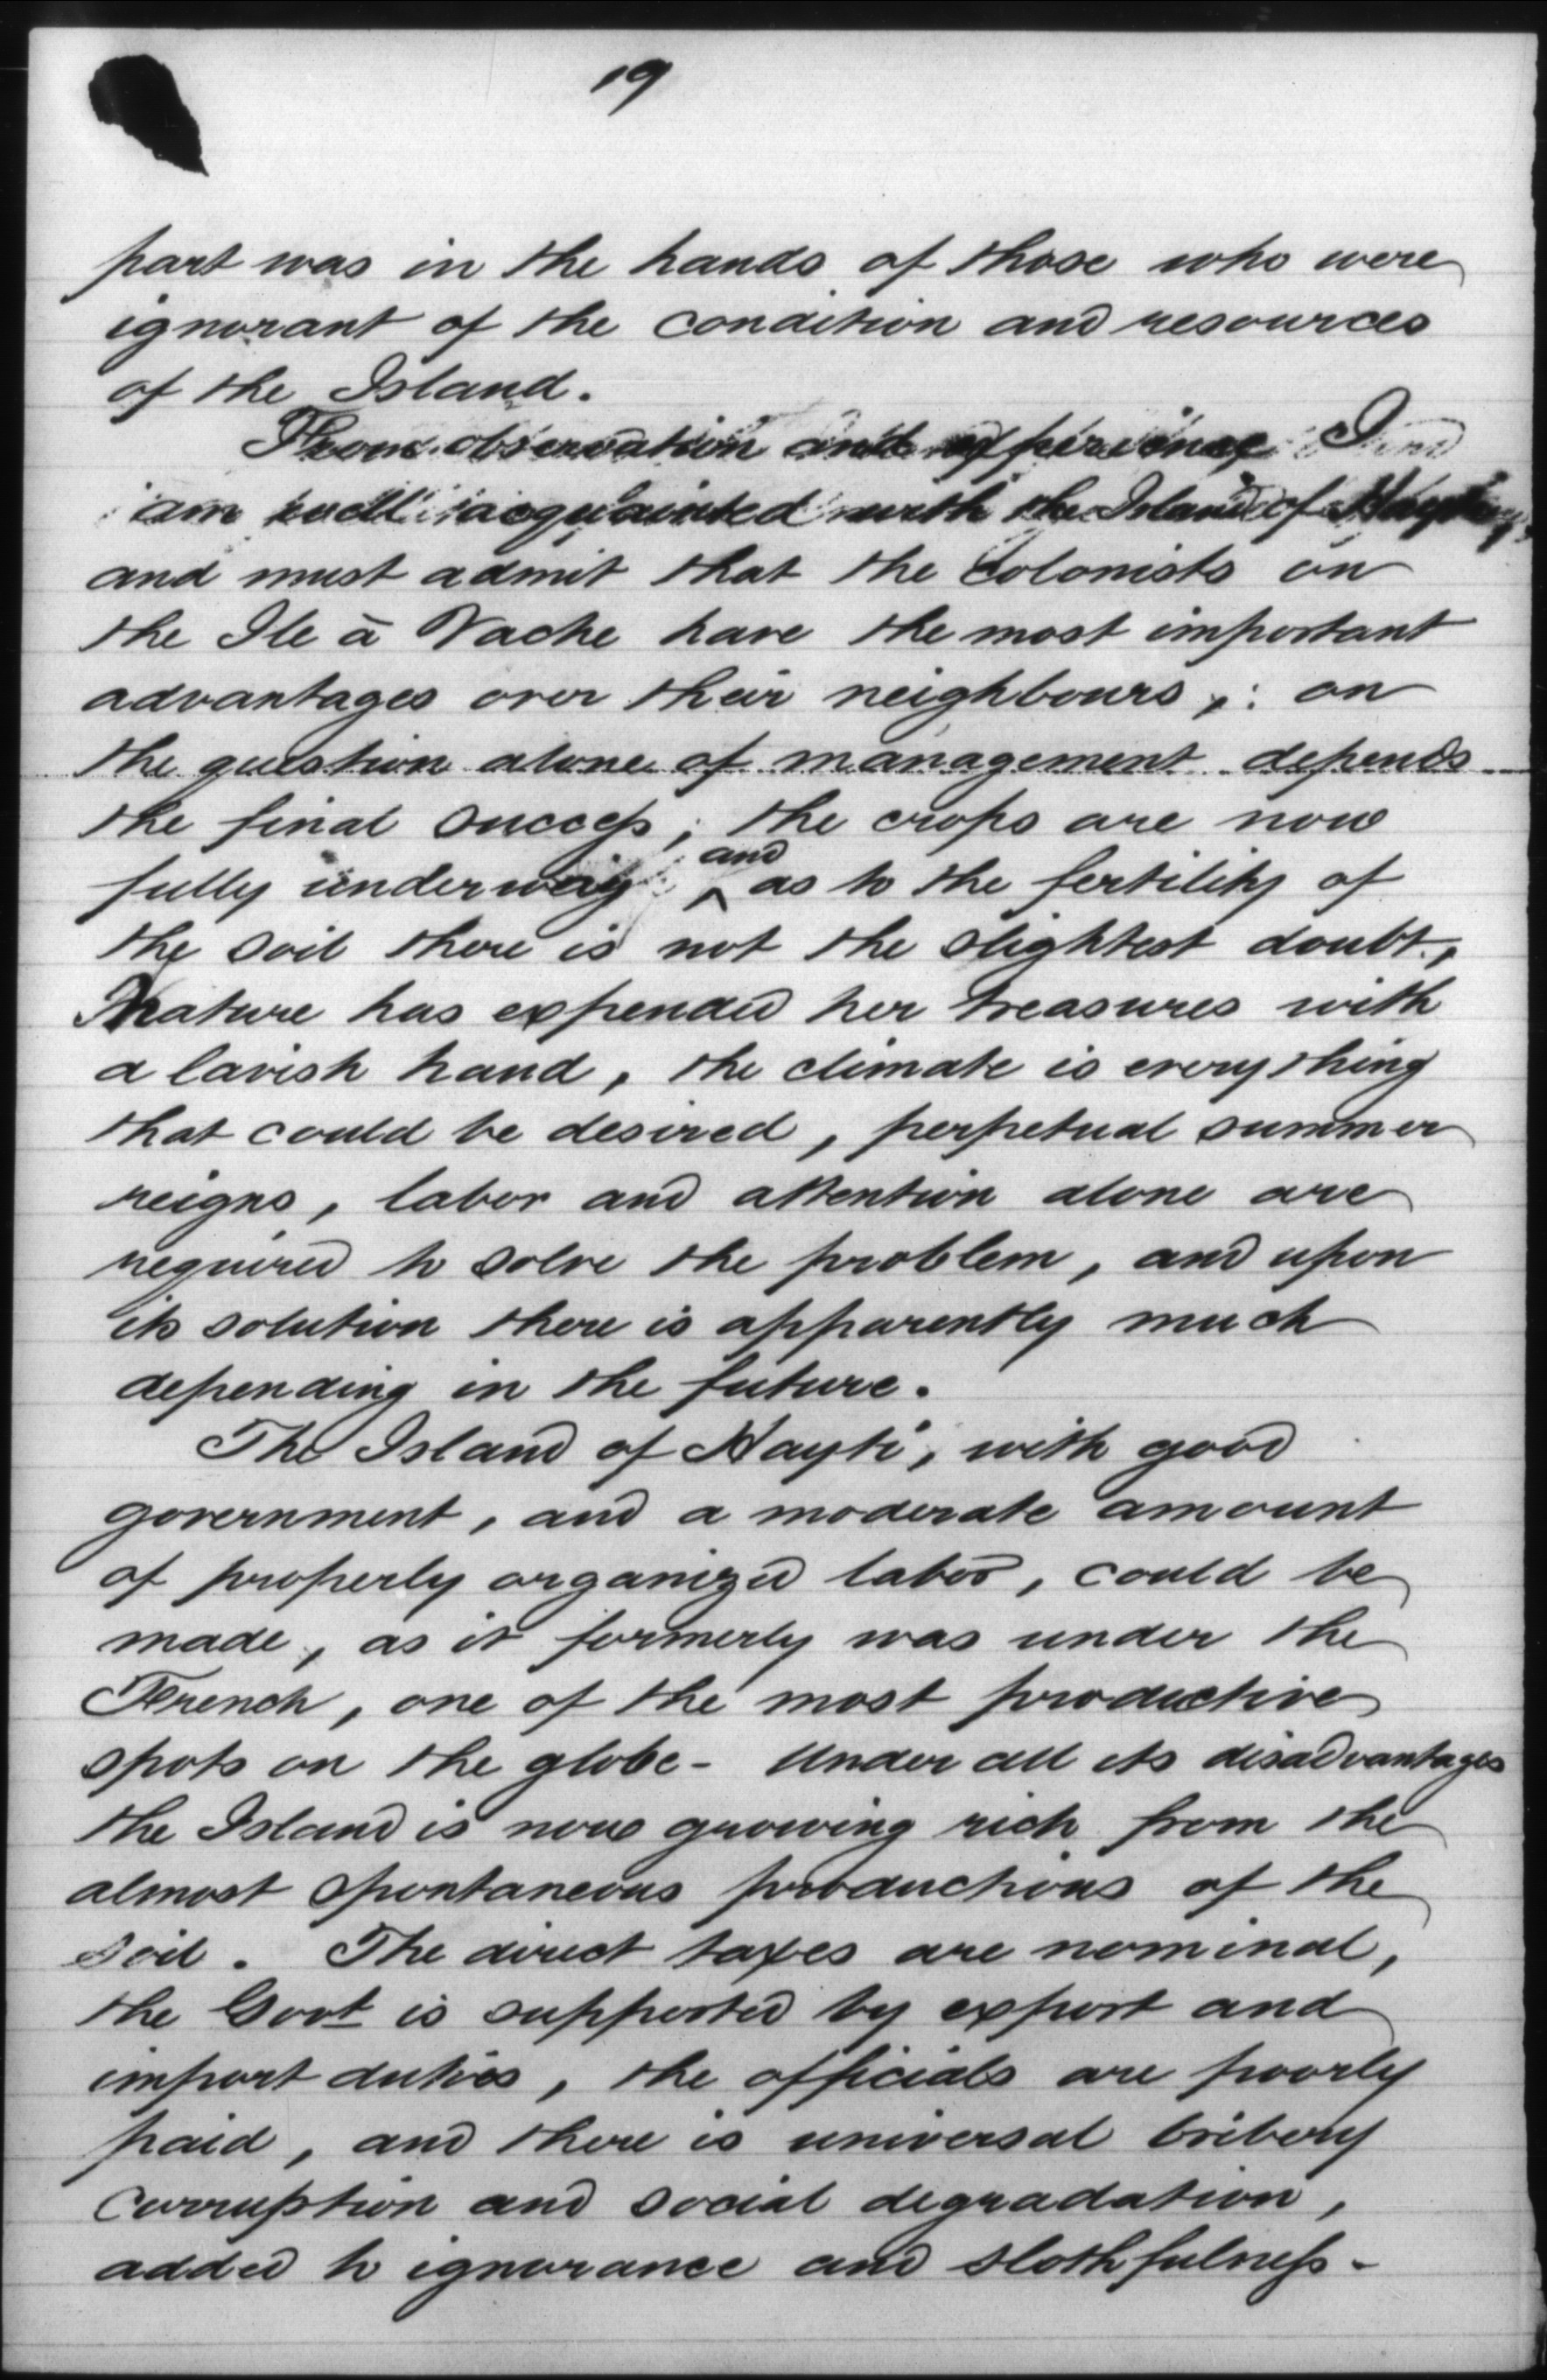 19
part was in the hands of those who were
ignorant of the condition and resources
of the Island.
From observation and experience I
am well acquainted with the Island of Hayti,
and must admit that the Colonists on
the Ile à Vache have the most important
advantages over their neighbours, : on
the question alone of management depends
the final success ; the crops are now
and
fully underway ^ as to the fertility of
the soil there is not the slightest doubt,
Nature has expended her treasures with
a lavish hand, the climate is everything
that could be desired, perpetual summer
reigns, labor and attention alone are
required to solve the problem, and upon
its solution there is apparently much
depending in the future.
The Island of Hayti, with good
government, and a moderate amount
of properly organized labor, could be
made, as it formerly was under the
French, one of the most productive
spots on the globe - Under all its disadvantages
the Island is now growing rich from the
almost spontaneous productions of the
soil. The direct taxes are nominal,
the Govt is supported by export and
import duties, the officials are poorly
paid, and there is universal bribery
corruption and social degradation,
added to ignorance and slothfulness -